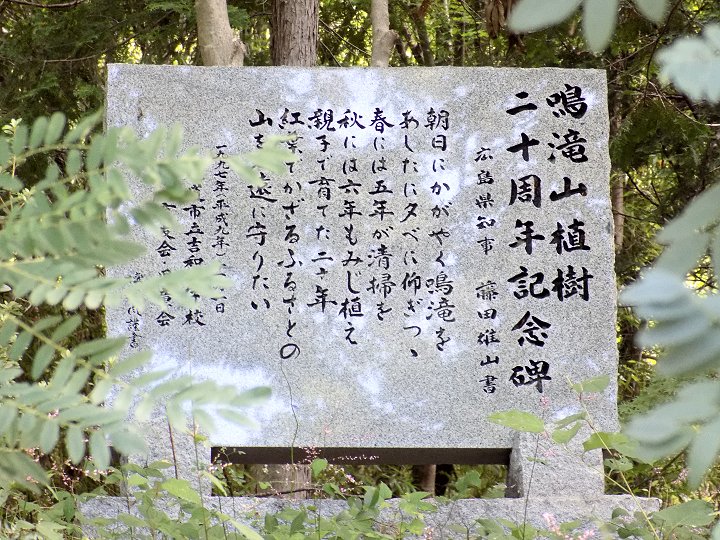 鳴滝山植樹
二十周年記念碑
広島県知事 藤田雄山書
朝日にかがやく鳴滝を
あしたに夕べに仰ぎつゝ
春には五年が清掃を
秋には六年もみじ植え
親子で育てた二十年
紅葉でかざるふるさとの
山を永遠に守りたい
一九九七年(平成九年)
市立吉和 校
謹書